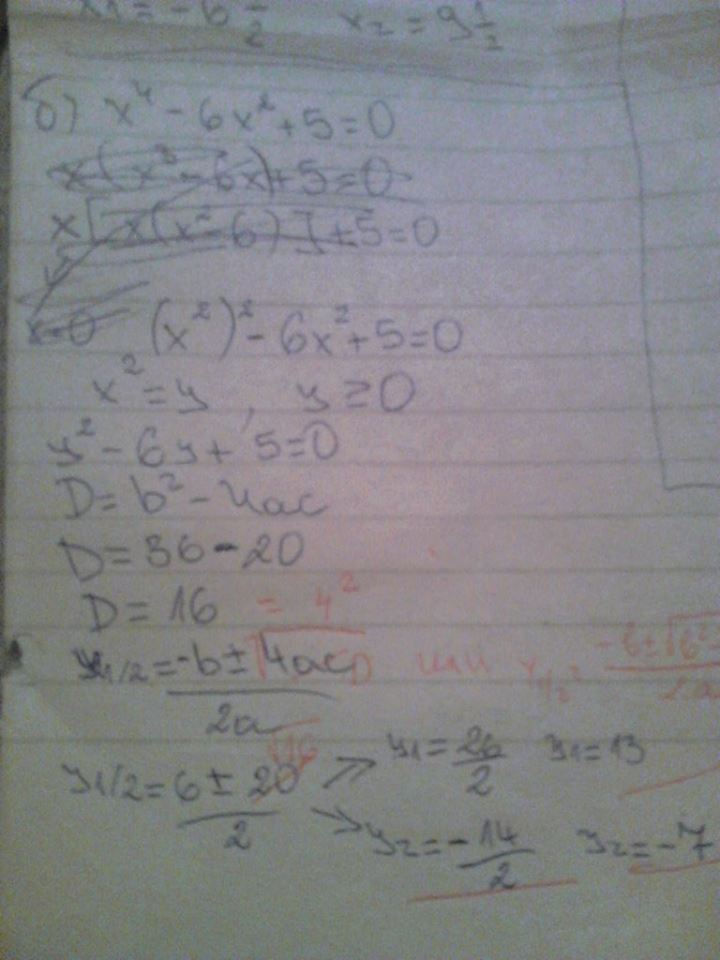 x1 = -6 1/2 x2 = 9 1/2
б) x⁴ - 6x² + 5 = 0
x(x³ - 6x) + 5 = 0
x[x(x² - 6)] + 5 = 0
x = 0 (x²)² - 6x² + 5 = 0
x² = y, y ≥ 0
y² - 6y + 5 = 0
D = b² - 4ac
D = 36 - 20
D = 16 = 4²
y1/2 = (-b ± √4ac D)/2a или y1/2 =
√16
y1/2 = (6 ± 20)/2 => y1 = 26/2 y1 = 13
=> y2 = -14/2 y2 = -7